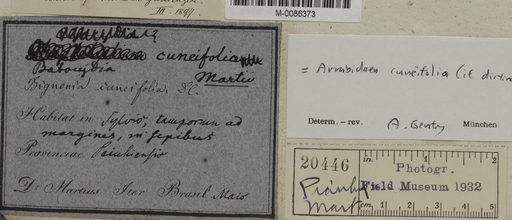 III. 1897.
M-0086373
cuneifolia
Martii
Bignonia cuneifolia, DC.
Habitat in Sylvis, camporum ad
margines, in sepibus
Provinciae Piauhiensis
Dr Martius Iter Brasil. Maio
= Arrabidaea cuneifolia
Determ. – rev. A. Gentry München
20446
in. 1 2
Photogr.
Field Museum 1932
cm. 1 2 3 4 5
Mart